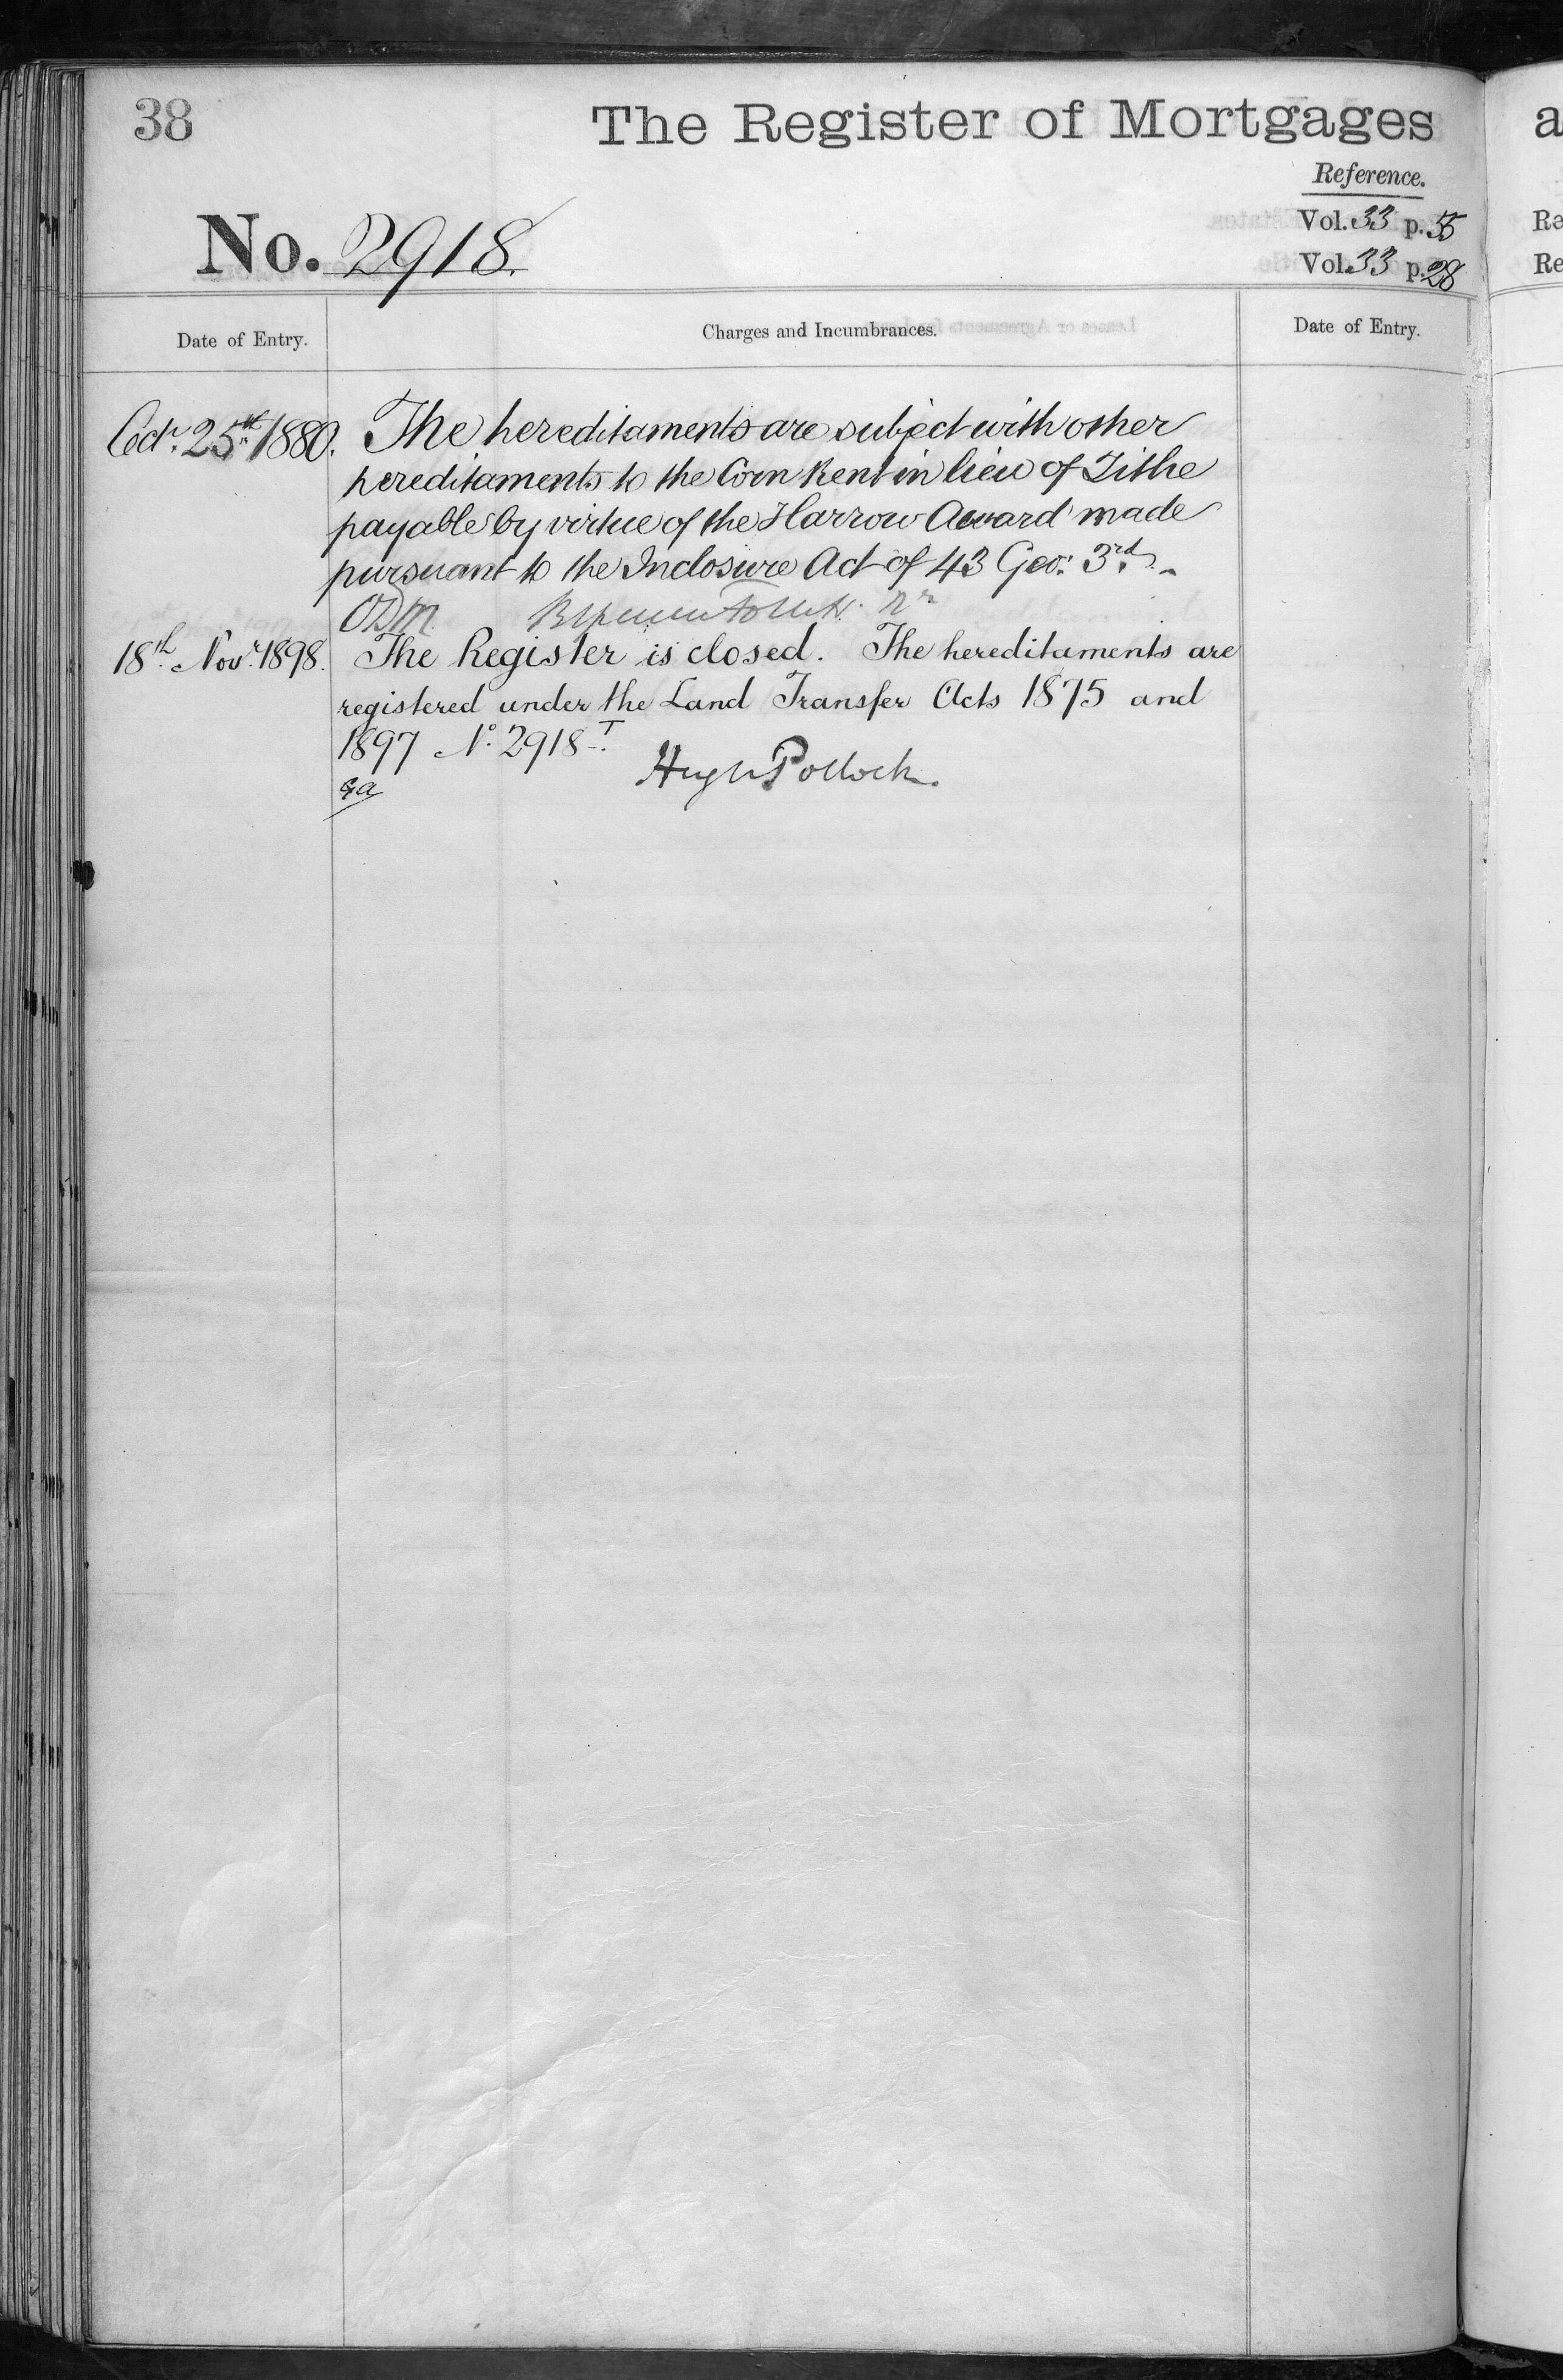 38
The Register of Mortgages
a
Reference.
No. 2918.
Vol. 33 p. 55
Vol. 33 p. 28
Re
Re
Date of Entry.
Charges and Incumbrances.
Date of Entry.
Octr. 25th 1880. The hereditaments are subject with other
hereditaments to the Corn Rent in lieu of Tithe
payable by virtue of the Harrow Award made
pursuant to the Inclosure Act of 43 Geo: 3rd.
ODM
18th Novr. 1898. The Register is closed. The hereditaments are
registered under the Land Transfer Acts 1875 and
1897 No. 2918T.
Hugh Pollock.